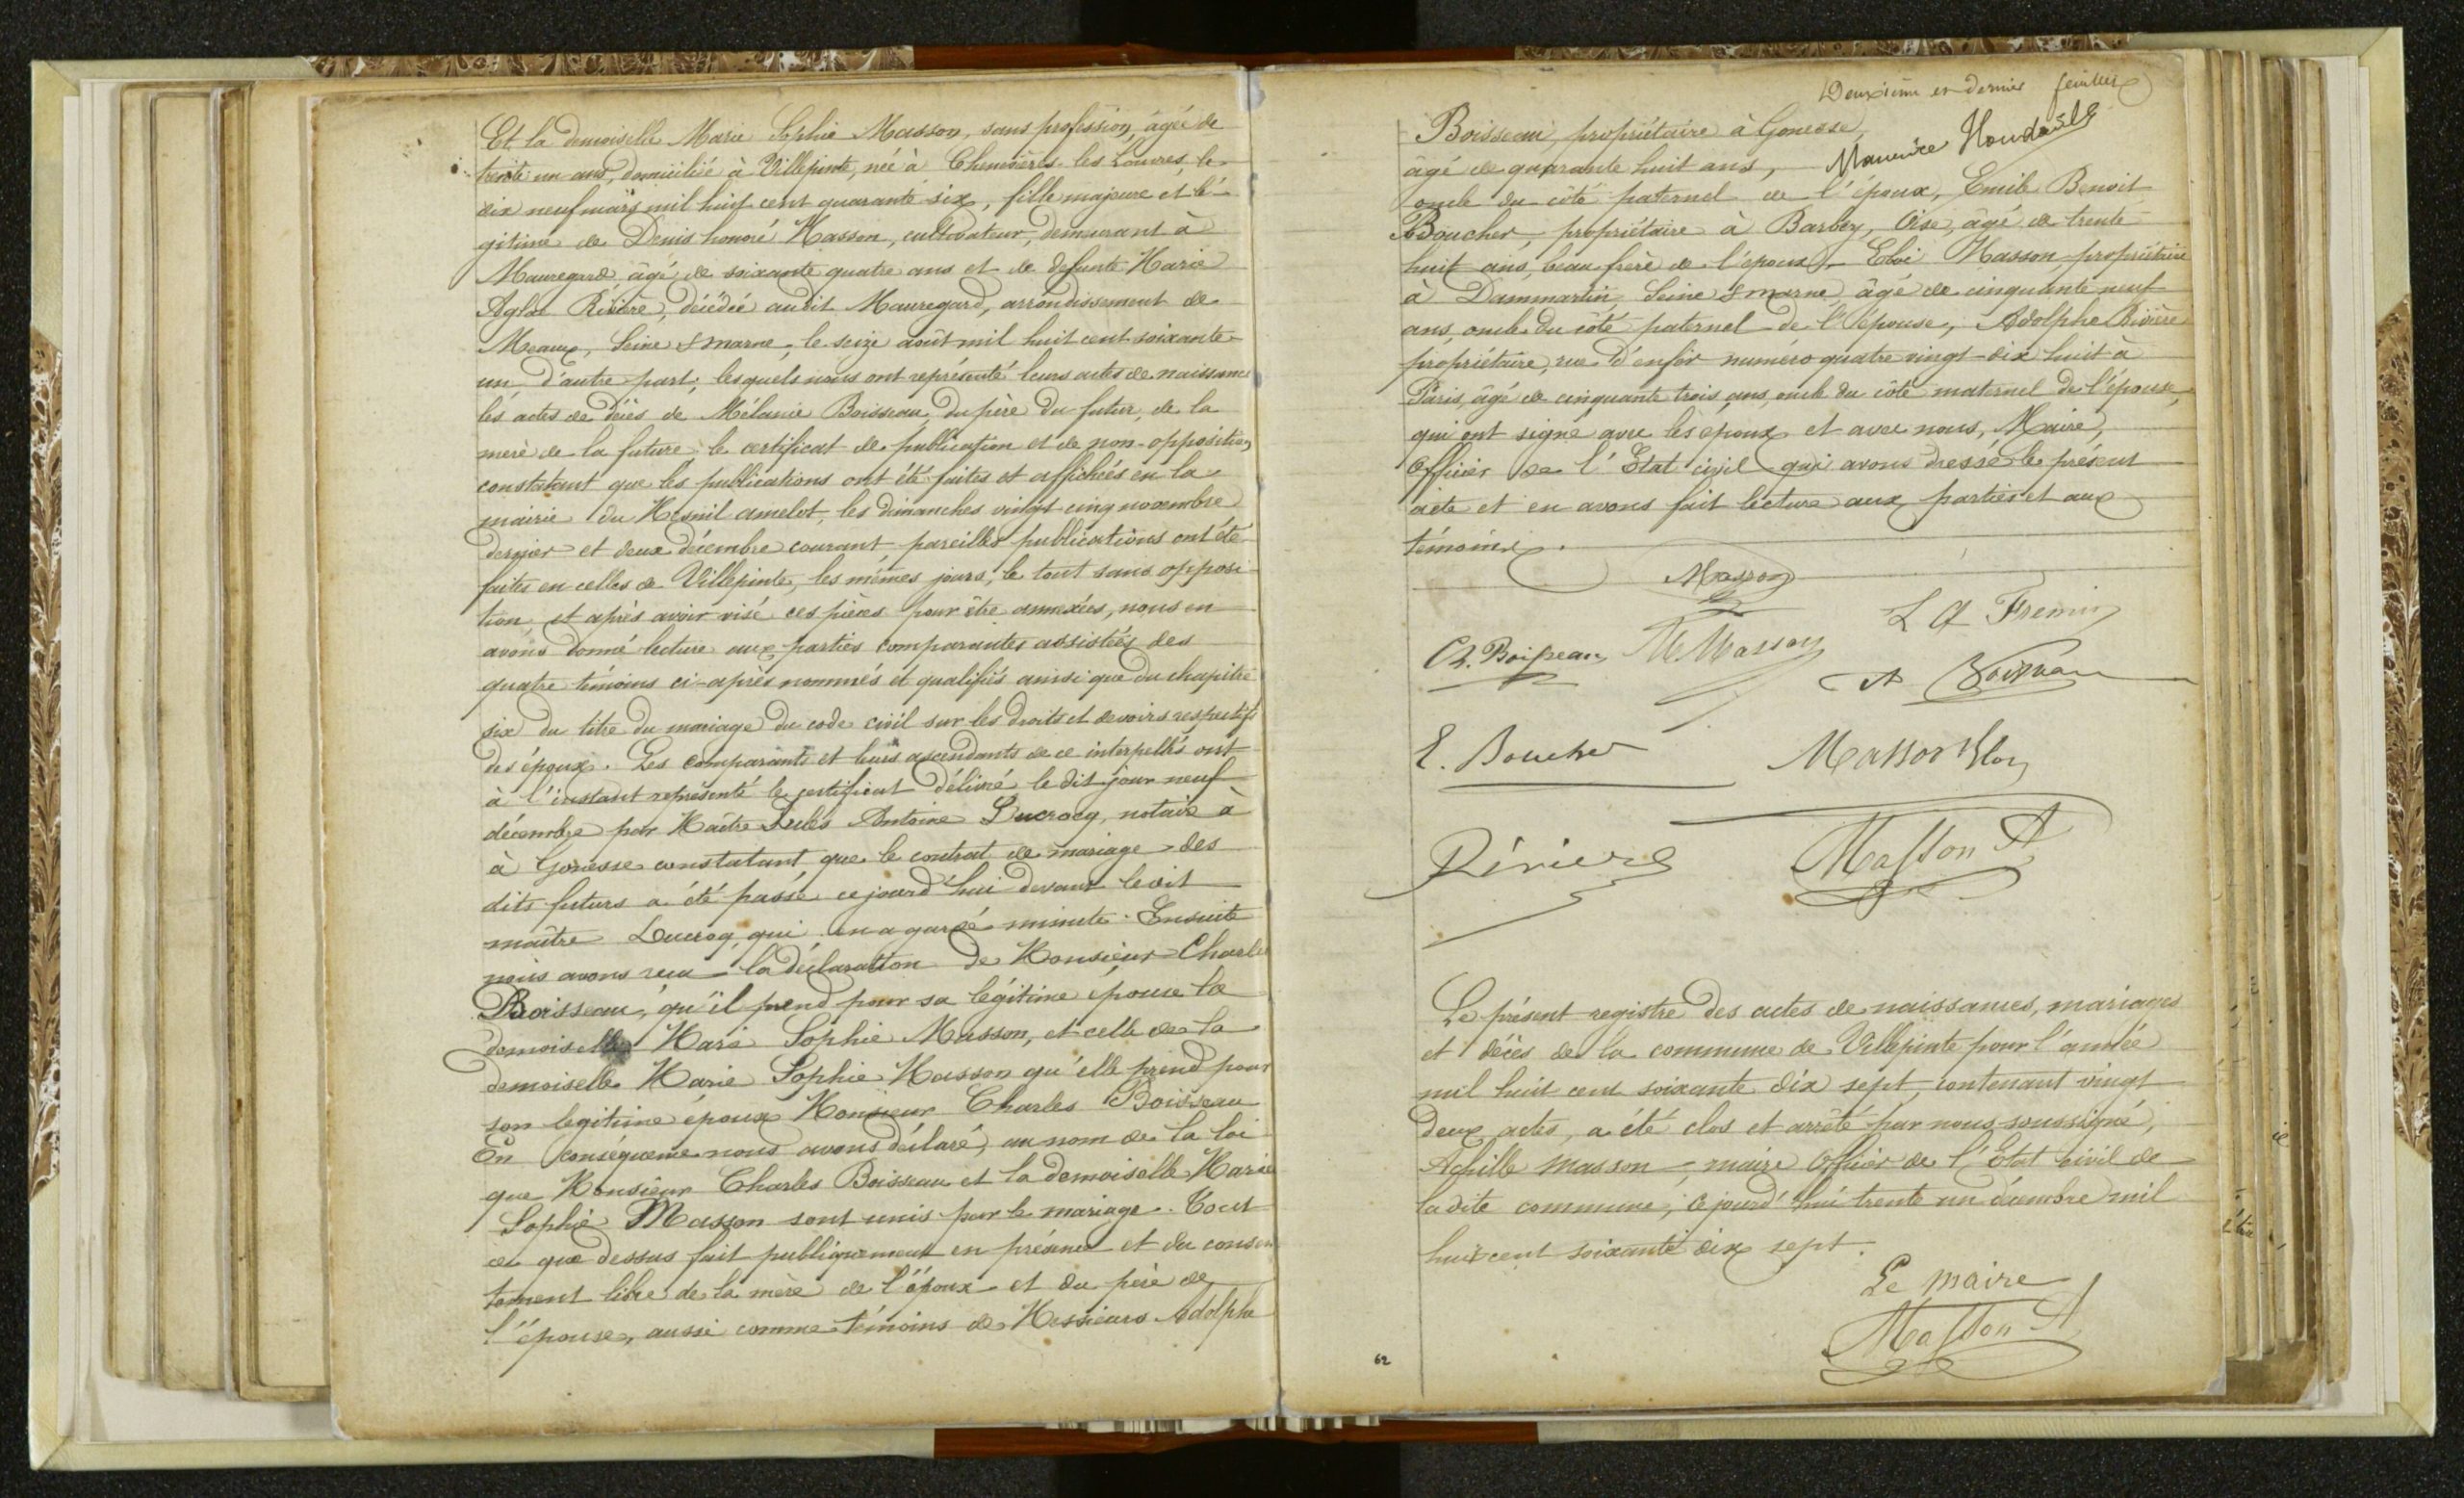 Et la demoiselle Marie Sophie Masson, sans profession, âgée de
trente un ans, domiciliée à Villepinte, née à Chennières les Louvres, le
dix neuf mars mil huit cent quarante six, fille majeure et lé-
gitime de Denis honoré Masson, cultivateur, demeurant à
Mauregard âgé de soixante quatre ans et de defunte Marie
Aglaé Rivière, décédée audit Mauregard, arrondissement de
Meaux, Seine & marne, le seize août mil huit cent soixante
un, d'autre part; lesquels nous ont représenté leurs actes de naissance
les actes de décès de Mélanie Boisseau, du père du futur, de la
mère de la future, le certificat de publication et de non-opposition
constatant que les publications ont été faites et affichées en la
mairie du Mesnil amelot, les dimanches vingt cinq novembre
dernier et deux décembre courant pareilles publications ont été
faites en celles de Villepinte, les mêmes jours, le tout sans opposi-
tion et après avoir visé ces pièces pour être annexées, nous en
avons donné lecture aux parties comparantes assistées des
quatre témoins ci-après nommés et qualifiés ainsi que du chapitre
six du titre du mariage du code civil sur les droits et devoirs respectifs
des époux. Les comparants et leurs ascendants de ce interpellés ont
à l'instant représenté le certificat délivré le dit jour neuf
décembre par Maître Jules Antoine Ducrocq, notaire à
à Gonesse constatant que le contrat de mariage des
dits futurs a été passé cejourd'hui devant ledit
maître Ducrocq, qui en a gardé minute. Ensuite
nous avons reçu la déclaration de Monsieur Charles
Boisseau, qu'il prend pour sa légitime épouse la
demoiselle Marie Sophie Masson, et celle de la
demoiselle Marie Sophie Masson qu'elle prend pour
son legitime époux Monsieur Charles Boisseau
En conséquence nous avons déclaré, au nom de la loi
que Monsieur Charles Boisseau et la demoiselle Marie
Sophie Masson sont unis par le mariage. Tout
ce que dessus fait publiquement en présence et du consen
tement libre de la mère de l'époux et du père de
l'épouse, aussi comme témoins de Messieurs Adolphe
Deuxième et dernier feuillet
Maurice Houdaille
Boisseau, propriétaire à Gonesse,
âgé de quarante huit ans,
oncle du côté paternel de l'époux, Emile Benoit
Boucher, propriétaire à Barbery, Oise, âgé de trente
huit ans, beau frère de l'époux, Eloi Masson, propriétaire
à Dammartin Seine & marne, âgé de cinquante neuf
ans, oncle du côté paternel de l'épouse, Adolphe Rivière
propriétaire, rue d'enfer numéro quatre vingt-dix huit à
Paris, âgé de cinquante trois ans, oncle du côté maternel de l'épouse,
qui ont signé avec les époux et avec nous, Maire,
Officier de l'Etat civil qui avons dressé le présent
acte et en avons fait lecture aux parties et aux
témoins.
Masson
L A Fremin
Ch. Boisseau M Masson
A Boisseau
E. Boucher
Masson Eloy
Rivière
Masson A
Le présent registre des actes de naissances, mariages
et décès de la commune de Villepinte pour l'année
mil huit cent soixante dix sept, contenant vingt
deux actes, a été clos et arrêté par nous soussigné,
Achille Masson, maire Officier de l'Etat civil de
ladite commune, cejourd'hui trente un décembre mil
huit cent soixante dix sept.
Le maire
Masson A
62